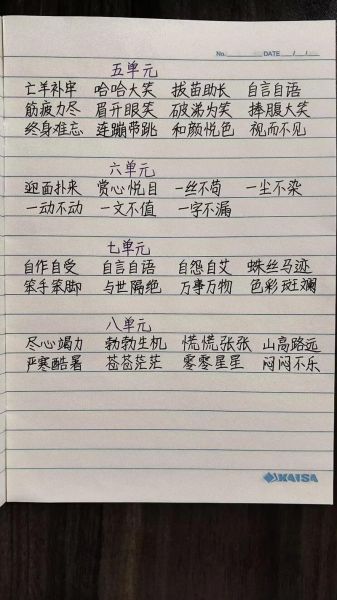 No. DATE / /
五单元
亡羊补牢 哈哈大笑 拔苗助长 自言自语
筋疲力尽 眉开眼笑 破涕为笑 捧腹大笑
终身难忘 连蹦带跳 和颜悦色 视而不见
六单元
迎面扑来 赏心悦目 一丝不苟 一尘不染
一动不动 一文不值 一字不漏
七单元
自作自受 自言自语 自怨自艾 蛛丝马迹
笨手笨脚 与世隔绝 万事万物 色彩斑斓
八单元
尽心竭力 勃勃生机 慌慌张张 山高路远
严寒酷暑 苍苍茫茫 零零星星 闷闷不乐
KAISA